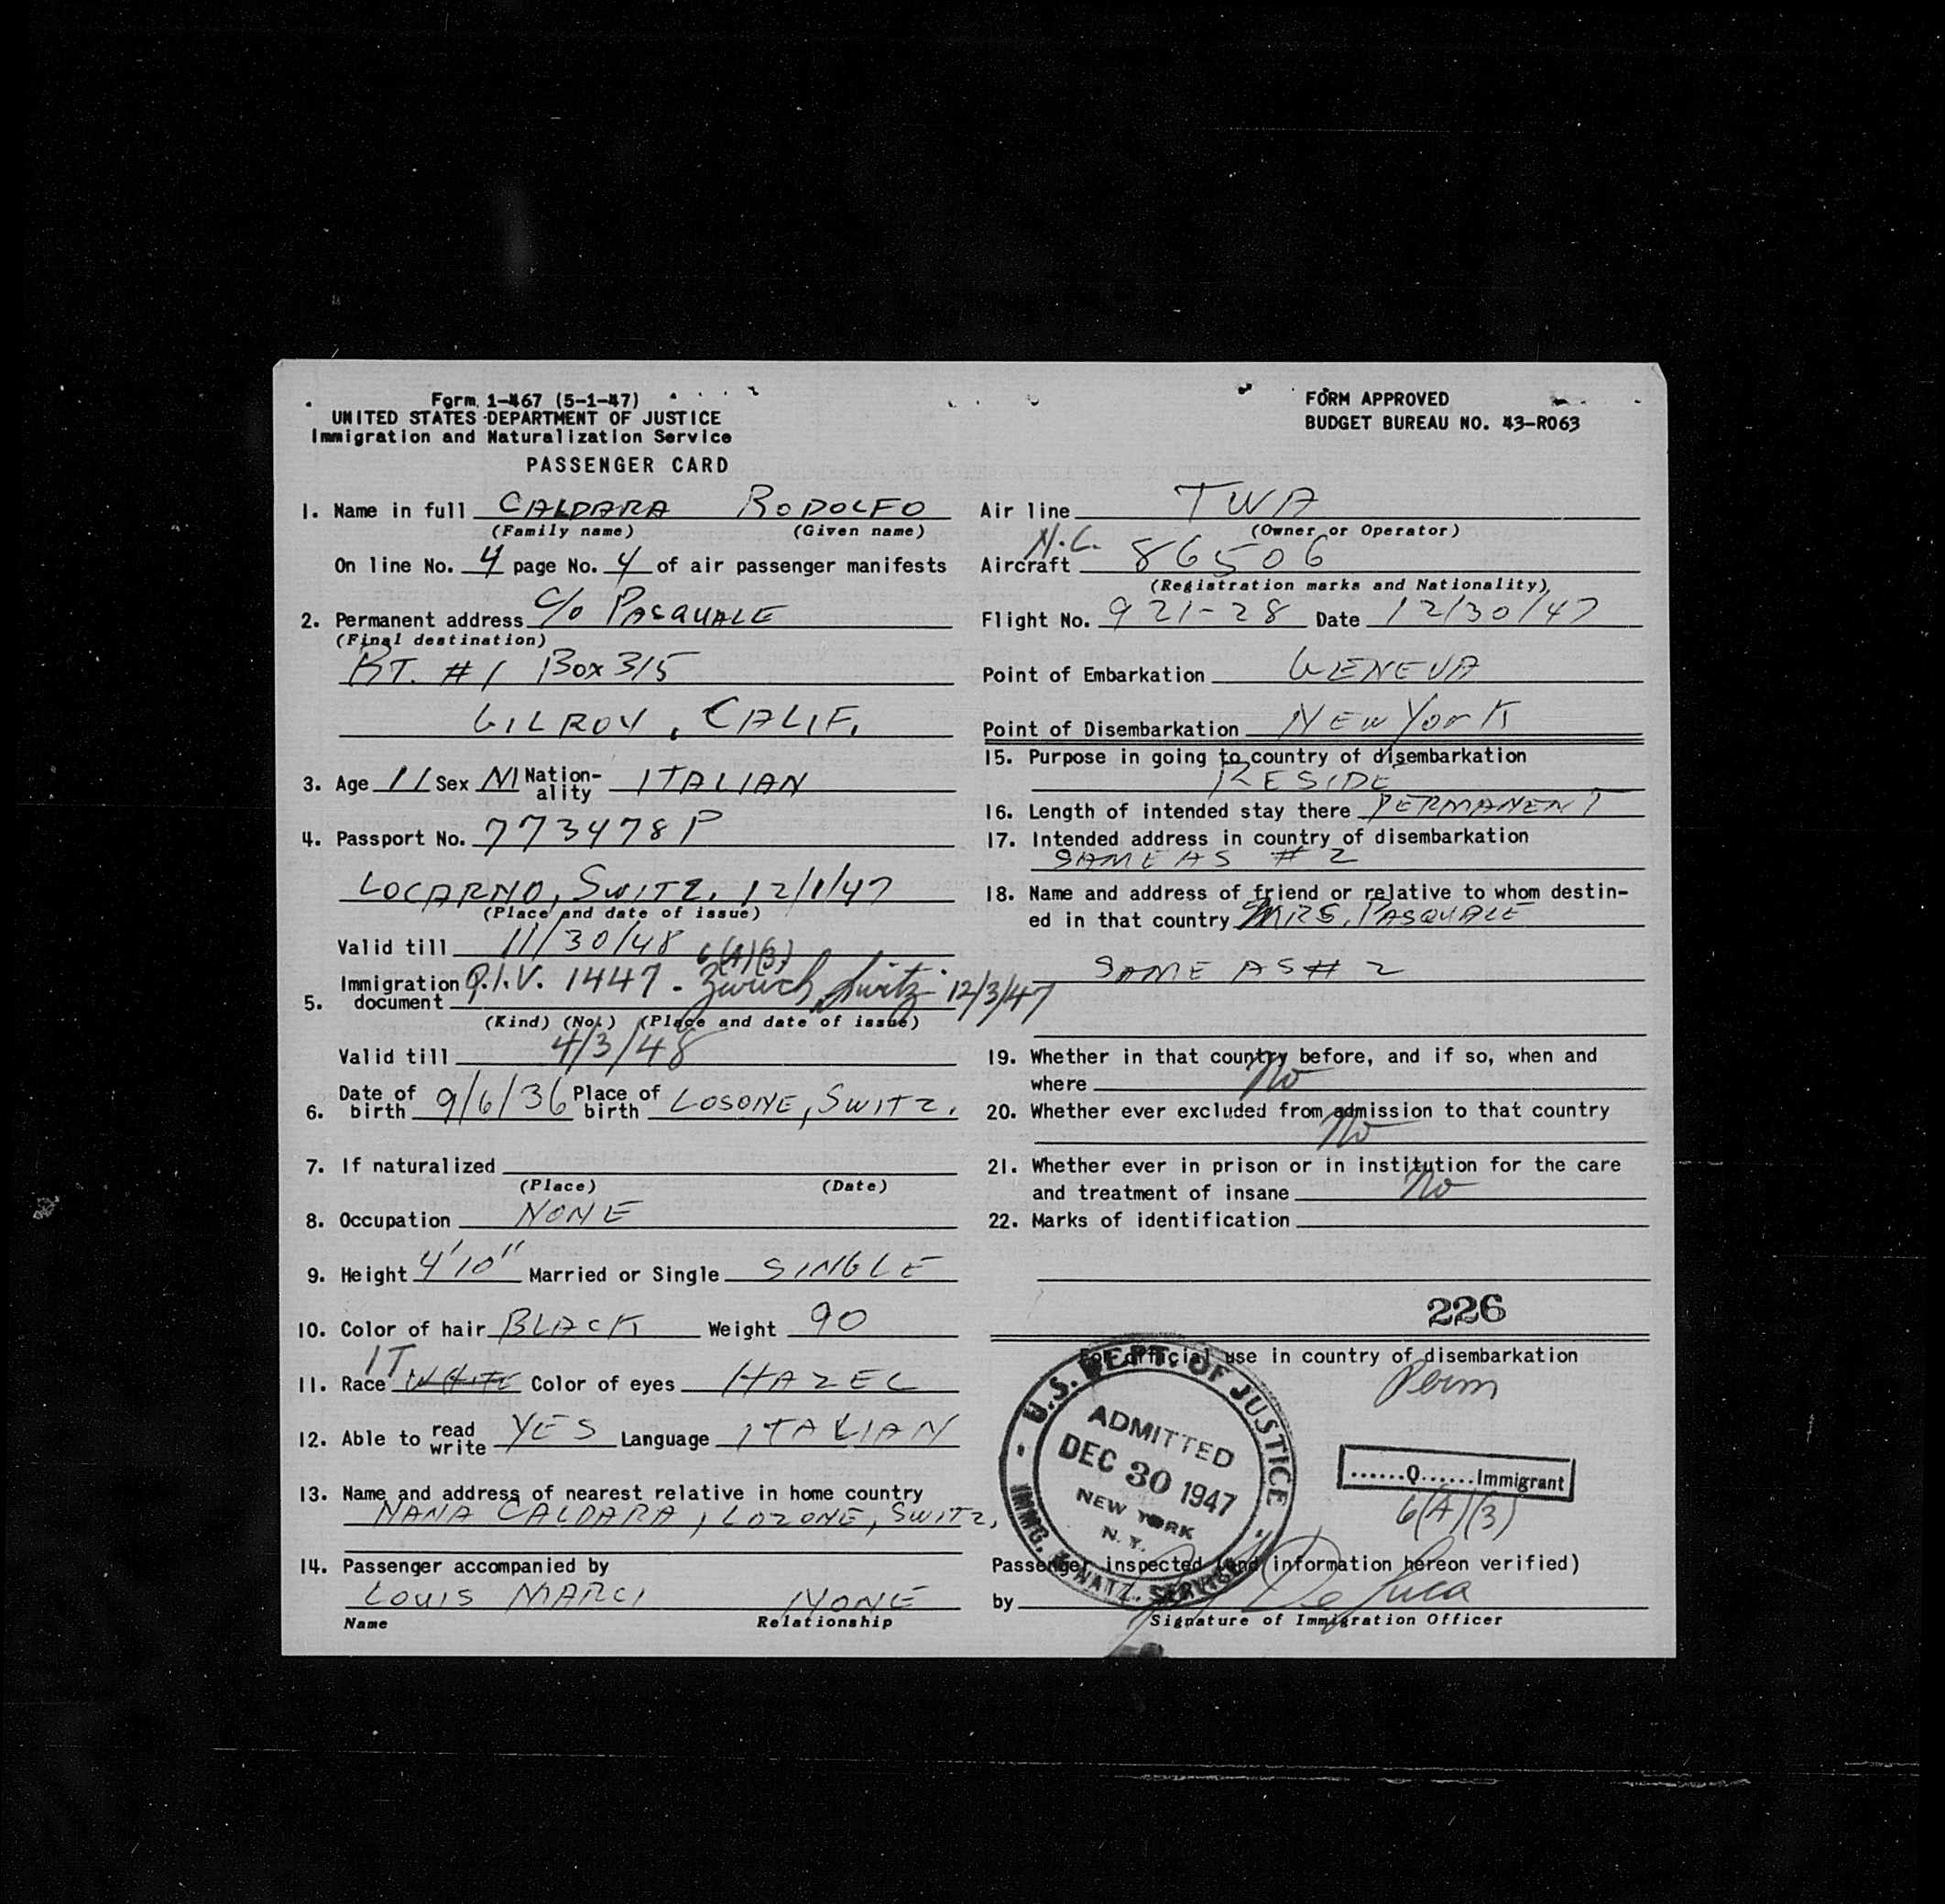 Form 1-467 (5-1-47)
UNITED STATES DEPARTMENT OF JUSTICE
Immigration and Naturalization Service
PASSENGER CARD
FORM APPROVED
BUDGET BUREAU NO. 43-R063
1. Name in full CALDARA RODOLFO
(Family name) (Given name)
On line No. 4 page No. 4 of air passenger manifests
2. Permanent address c/o PASQUALE
(Final destination)
RT. #1 Box 315
GILROY, CALIF.
3. Age 11 Sex M Nationality ITALIAN
4. Passport No. 773478P
LOCARNO, SWITZ. 12/1/47
(Place and date of issue)
Valid till 11/30/48
6(A)(3)
5. Immigration document Q.I.V. 1447 - Zurich, Switz. 12/3/47
(Kind) (No.) (Place and date of issue)
Valid till 4/3/48
6. Date of birth 9/6/36 Place of birth LOSONE, SWITZ.
7. If naturalized
(Place) (Date)
8. Occupation NONE
9. Height 4'10" Married or Single SINGLE
10. Color of hair BLACK Weight 90
IT
11. Race WHITE Color of eyes HAZEL
12. Able to read write YES Language ITALIAN
13. Name and address of nearest relative in home country
NANA CALDARA, LOZONE, SWITZ,
14. Passenger accompanied by
LOUIS MARCI NONE
Name Relationship
Air line TWA
(Owner or Operator)
N.C.
Aircraft 86506
(Registration marks and Nationality)
Flight No. 921-28 Date 12/30/47
Point of Embarkation GENEVA
Point of Disembarkation NEW YORK
15. Purpose in going to country of disembarkation
RESIDE
16. Length of intended stay there PERMANENT
17. Intended address in country of disembarkation
SAME AS #2
18. Name and address of friend or relative to whom destin-
ed in that country MRS. PASQUALE
SAME AS #2
19. Whether in that country before, and if so, when and
where No
20. Whether ever excluded from admission to that country
No
21. Whether ever in prison or in institution for the care
and treatment of insane No
22. Marks of identification
226
For official use in country of disembarkation
Perm
U.S. DEPT. OF JUSTICE
ADMITTED
DEC 30 1947
NEW YORK
N. Y.
IMMG. & NATZ. SERVICE
......Q......Immigrant
6(A)(3)
Passenger inspected (and information hereon verified)
by De Luca
Signature of Immigration Officer